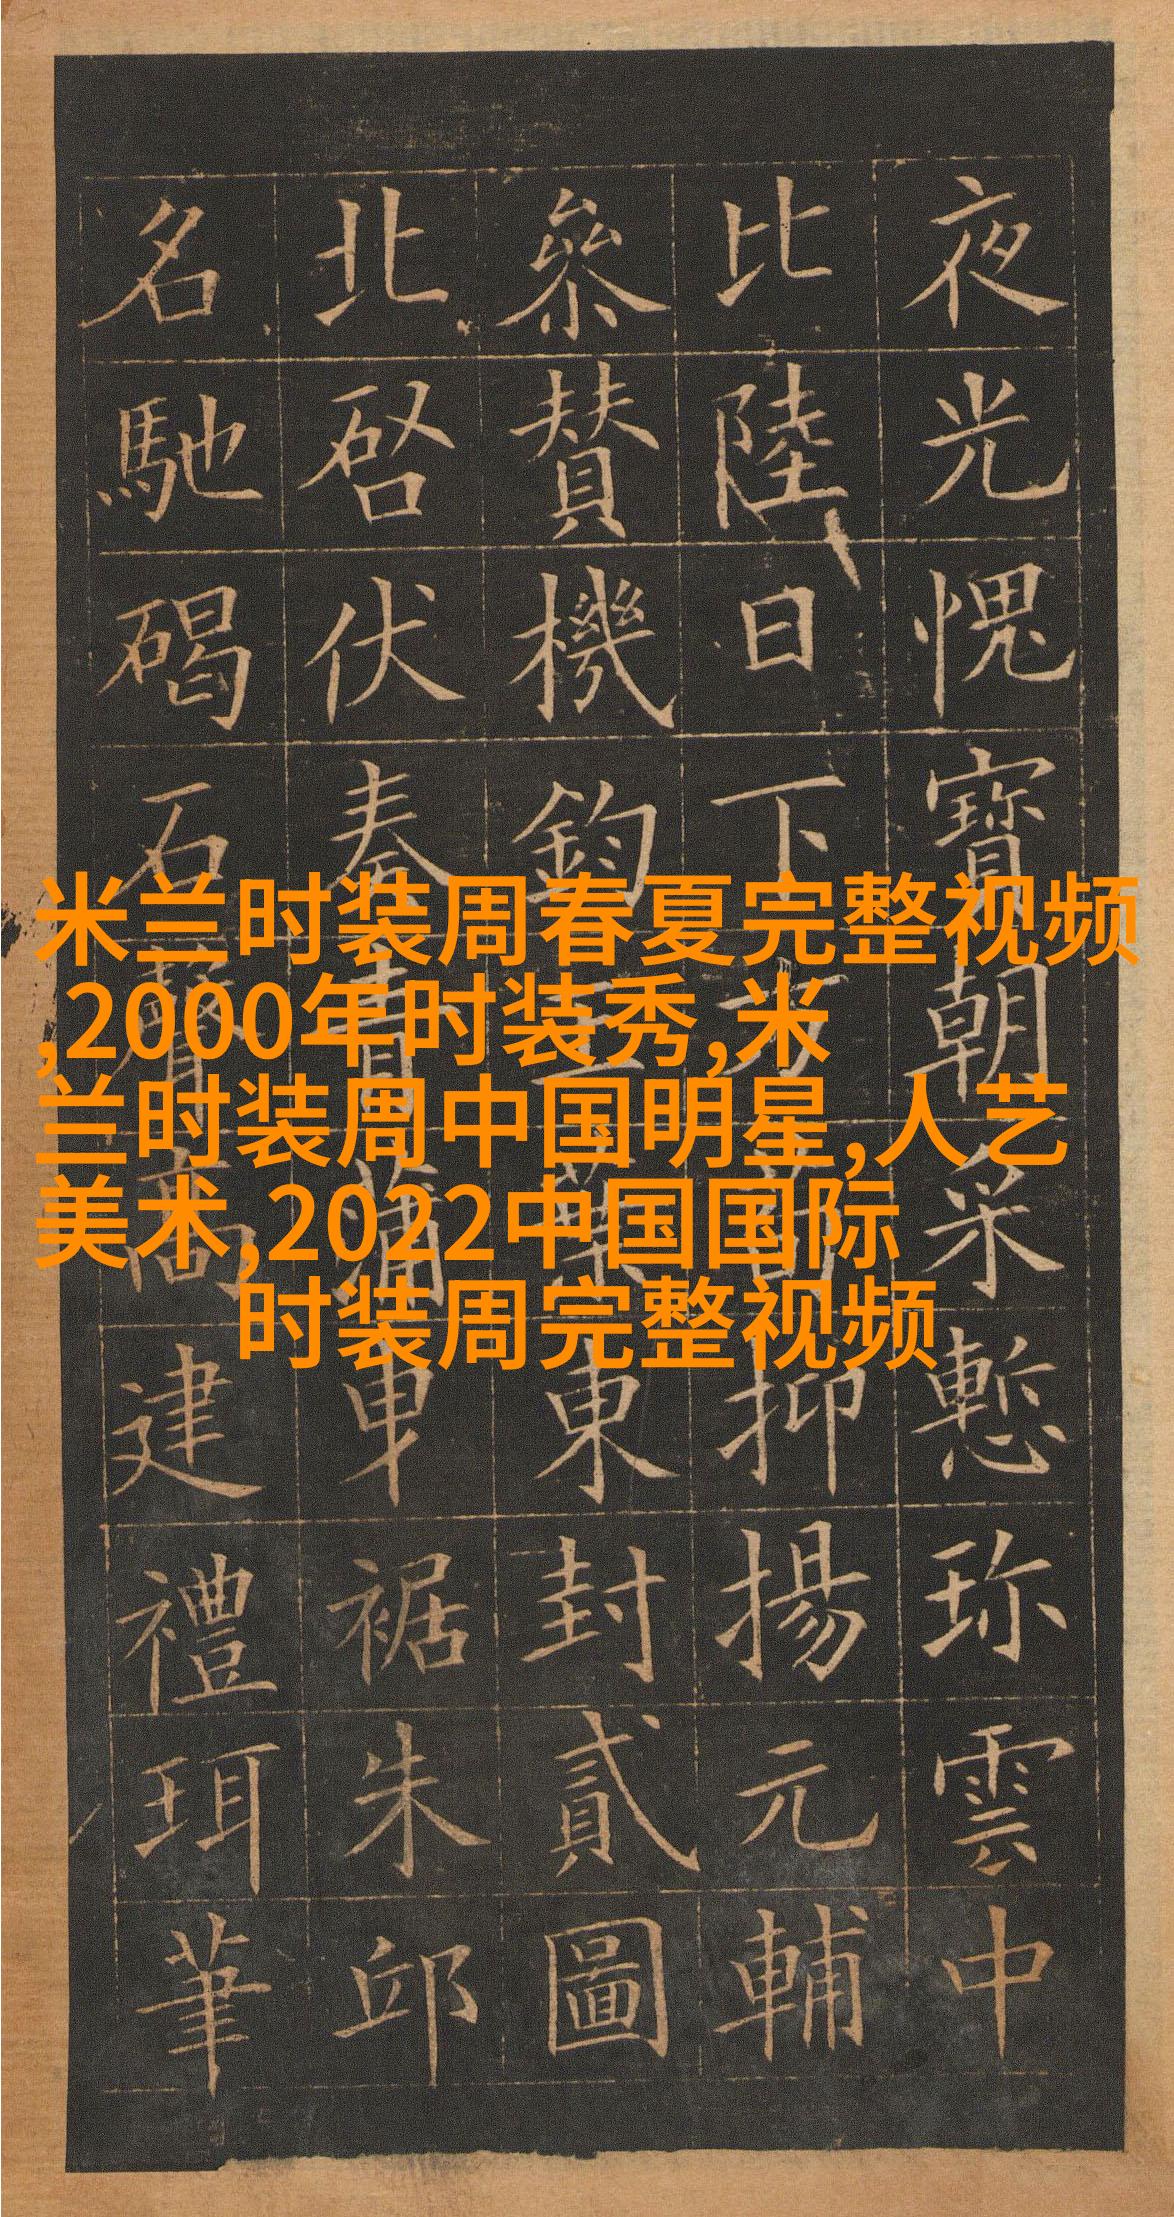 米兰时装周春夏完整视频
,2000年时装秀,米
兰时装周中国明星,人艺
美术,2022中国国际
时装周完整视频
夜光愧寶朝采慙珎雲中
比陸日下方抑揚元輔
參賛機鈞東封貳圖
北啓伏奏青蒲曳裾朱邸
名馳碣石聲高建禮珥筆